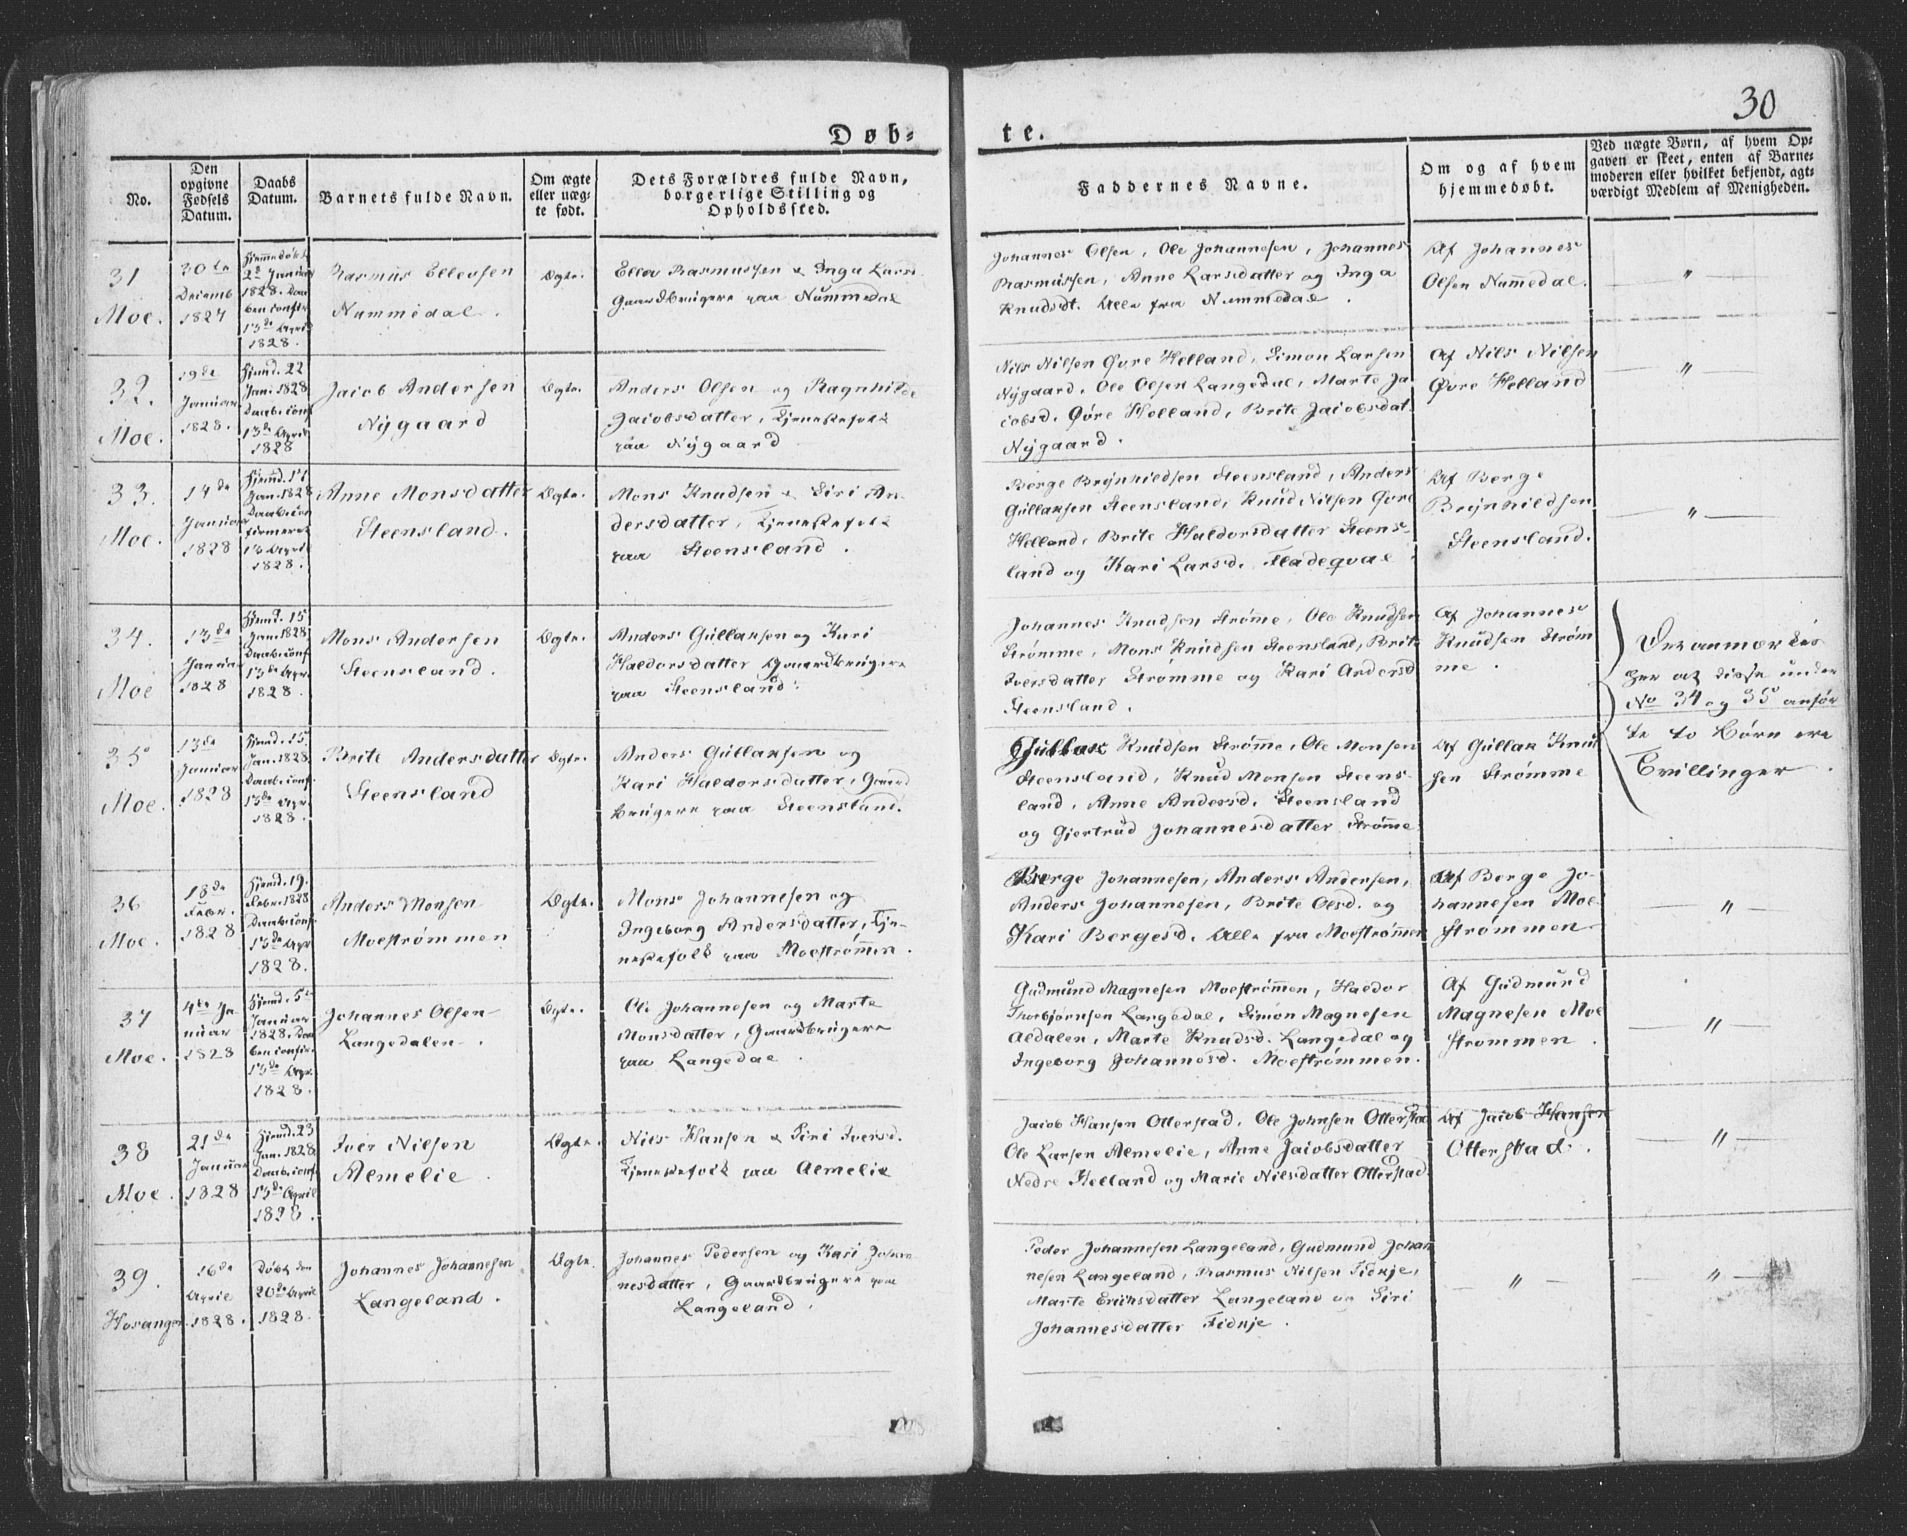 30
Døb=
te.
No.
Den
opgivne
Fødsels
Datum.
Daabs
Datum.
Barnets fulde Navn.
Om ægte
eller uæg-
te født.
Dets Forældres fulde Navn,
borgerlige Stilling og
Opholdssted.
Faddernes Navne.
Om og af hvem
hjemmedøbt.
Ved uægte Børn, af hvem Op-
gaven er skeet, enten af Barne-
moderen eller hvilket bekjendt, agt-
værdigt Medlem af Menigheden.
31
Moe.
30te
Decemb
1827
Hjemmedøbt
2d Januar
1828. Daa
ben confir
13de April
1828.
Rasmus Ellevsen
Nummedal.
Ægte.
Ellev Rasmussen & Inga Larsd.
Gaardbrugere paa Nummedal
Johannes Olsen, Ole Johannesen, Johannes
Rasmussen, Anne Larsdatter og Inga
Knudsdt. Alle fra Nummedal.
Af Johannes
Olsen Nummedal.
"
32.
Moe.
19de
Januar
1828.
Hjemd. 22
Jan. 1828
Daab. conf
13de April
1828
Jacob Andersen
Nygaard
Ægte.
Anders Olsen og Ragnhilde
Jacobsdatter, Tjenestefolk
paa Nygaard
Nils Nilsen Øvre Helland, Simon Larsen
Nygaard, Ole Olsen Langedal, Marte Ja
cobsd. Øvre Helland, Brite Jacobsdat.
Nygaard.
Af Nils Nilsen
Øvre Helland
"
33.
Moe.
14de
Januar
1828
Hjemd. 17
Jan. 1828
Daab. con
firmeret
13 April
1828.
Anne Monsdatter
Steensland.
Ægte.
Mons Knudsen & Siri An
dersdatter, Tjenestefolk
paa Steensland.
Berge Brynhildsen Steensland, Anders
Gullaksen Steensland, Knud Nilsen Øvre
Helland, Brite Haldorsdatter Steens-
land og Kari Larsd. Fladeqval
Af Berge
Brynhildsen
Steensland.
"
34.
Moe
13de
Januar
1828
Hjemd. 15
Jan. 1828
Daab. conf
13de Apr.
1828.
Mons Andersen
Steensland.
Ægte.
Anders Gullaksen og Kari
Haldorsdatter Gaardbrugere
paa Steensland.
Johannes Knudsen Strømme, Ole Knudsen
Strømme, Mons Knudsen Steensland, Brite
Iversdatter Strømme og Kari Andersd
Steensland.
Af Johannes
Knudsen Strøm
me.
Det anmærkes
her at disse under
No 34 og 35 anfør
te to Børn ere
Tvillinger.
35
Moe.
13de
Januar
1828
Hjemd. 15
Jan. 1828
Daab. conf.
13de Apr.
1828.
Brite Andersdatter
Steensland
Ægte.
Anders Gullaksen og
Kari Haldorsdatter, Gaard
brugere paa Steensland.
Gullak Knudsen Strømme, Ole Monsen
Steensland, Knud Monsen Steens-
land, Anne Andersd. Steensland
og Gjertrud Johannesdatter Strømme
Af Gullak Knud
sen Strømme
36
Moe.
18de
Febr.
1828
Hjemd. 19.
Febr. 1828
Daab. conf
13de Apr.
1828.
Anders Monsen
Moestrømmen
Ægte.
Mons Johannesen og
Ingeborg Andersdatter, Tje-
nestefolk paa Moestrømmen.
Berge Johannesen, Anders Andersen,
Anders Johannesen, Brite Olsd. og
Kari Bergesd. Alle fra Moestrømmen
Af Berge Jo-
hannesen Moe
strømmen
"
37
Moe.
4te Ja
nuar
1828
Hjemd. 5te
Januar
1828. Daa
ben confir.
13de Apr.
1828.
Johannes Olsen
Langedalen.
Ægte.
Ole Johannesen og Marte
Monsdatter, Gaardbrugere
paa Langedal.
Gudmund Magnesen Moestrømmen, Haldor
Thorbjørnsen Langedal, Simon Magnesen
Aldalen, Marte Knudsd. Langedal og
Ingeborg Johannesd. Moestrømmen.
Af Gudmund
Magnesen Moe
strømmen.
"
38
Moe.
21de
Januar
1828
Hjemd. 23
Jan. 1828
Daab. conf
13de April
1828.
Iver Nilsen
Almelie.
Ægte.
Nils Hansen & Siri Iversd.
Tjenestefolk paa Almelie
Jacob Hansen Otterstad, Ole Johnsen Otterstad
Ole Larsen Almelie, Anne Jacobsdatter
Nedre Helland og Marie Nilsdatter Otterstad
Af Jacob Hansen
Otterstad.
"
39.
Hosanger
16de
April
1828.
Døbt den
20de April
1828.
Johannes Johannesen
Langeland.
Ægte.
Johannes Pedersen og Kari Johan
nesdatter, Gaardbrugere paa
Langeland.
Peder Johannesen Langeland, Gudmund Johan
nesen Langeland, Rasmus Nilsen Tiduje,
Marte Erichsdatter Langeland og Siri
Johannesdatter Tiduje.
"
"